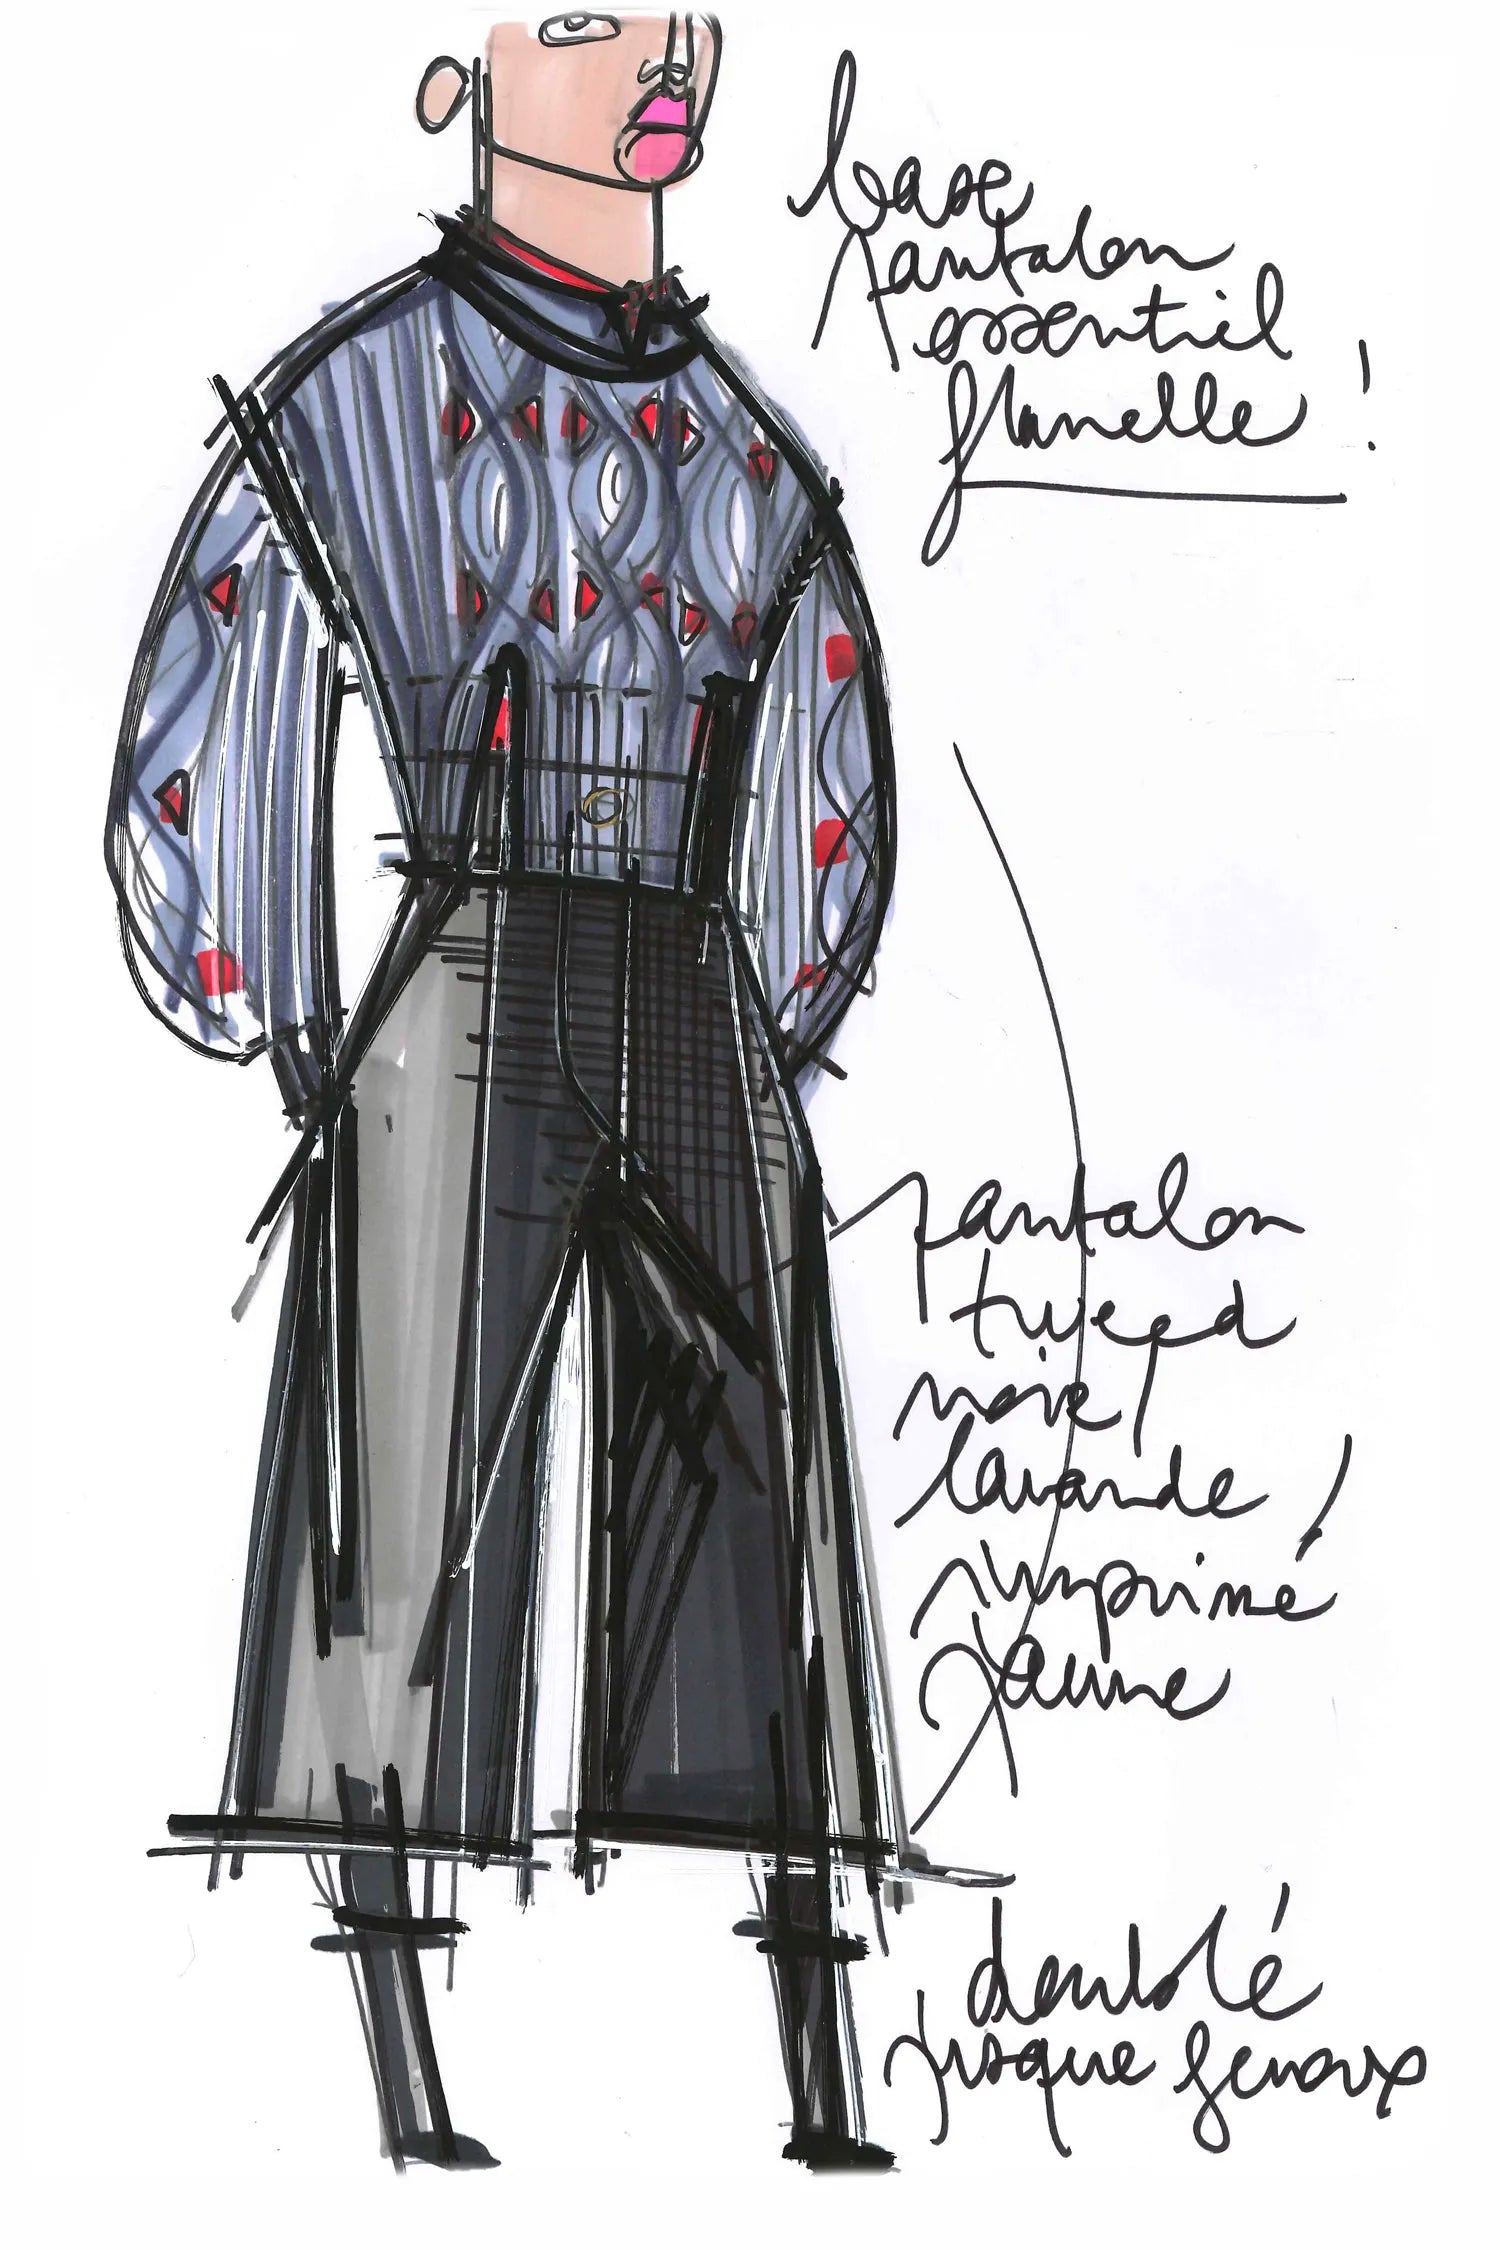 base
pantalon
essentiel
flanelle !
pantalon
tweed
noir /
lavande /
surimprimé
jaune
doublé
jusque genoux